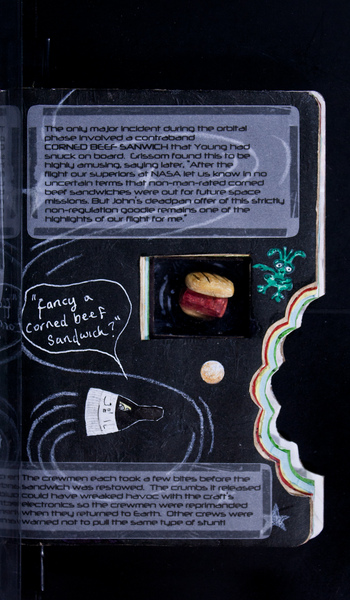 The only major incident during the orbital
phase involved a contraband
CORNED BEEF SANWICH that Young had
snuck on board. Grissom found this to be
highly amusing, saying later, "After the
flight our superiors at NASA let us know in no
uncertain terms that non-man-rated corned
beef sandwiches were out for future space
missions. But John's deadpan offer of this strictly
non-regulation goodie remains one of the
highlights of our flight for me."
"Fancy a
corned beef
Sandwich?"
The crewmen each took a few bites before the
sandwich was restowed. The crumbs it released
could have wreaked havoc with the craft's
electronics so the crewmen were reprimanded
when they returned to Earth. Other crews were
warned not to pull the same type of stunt!